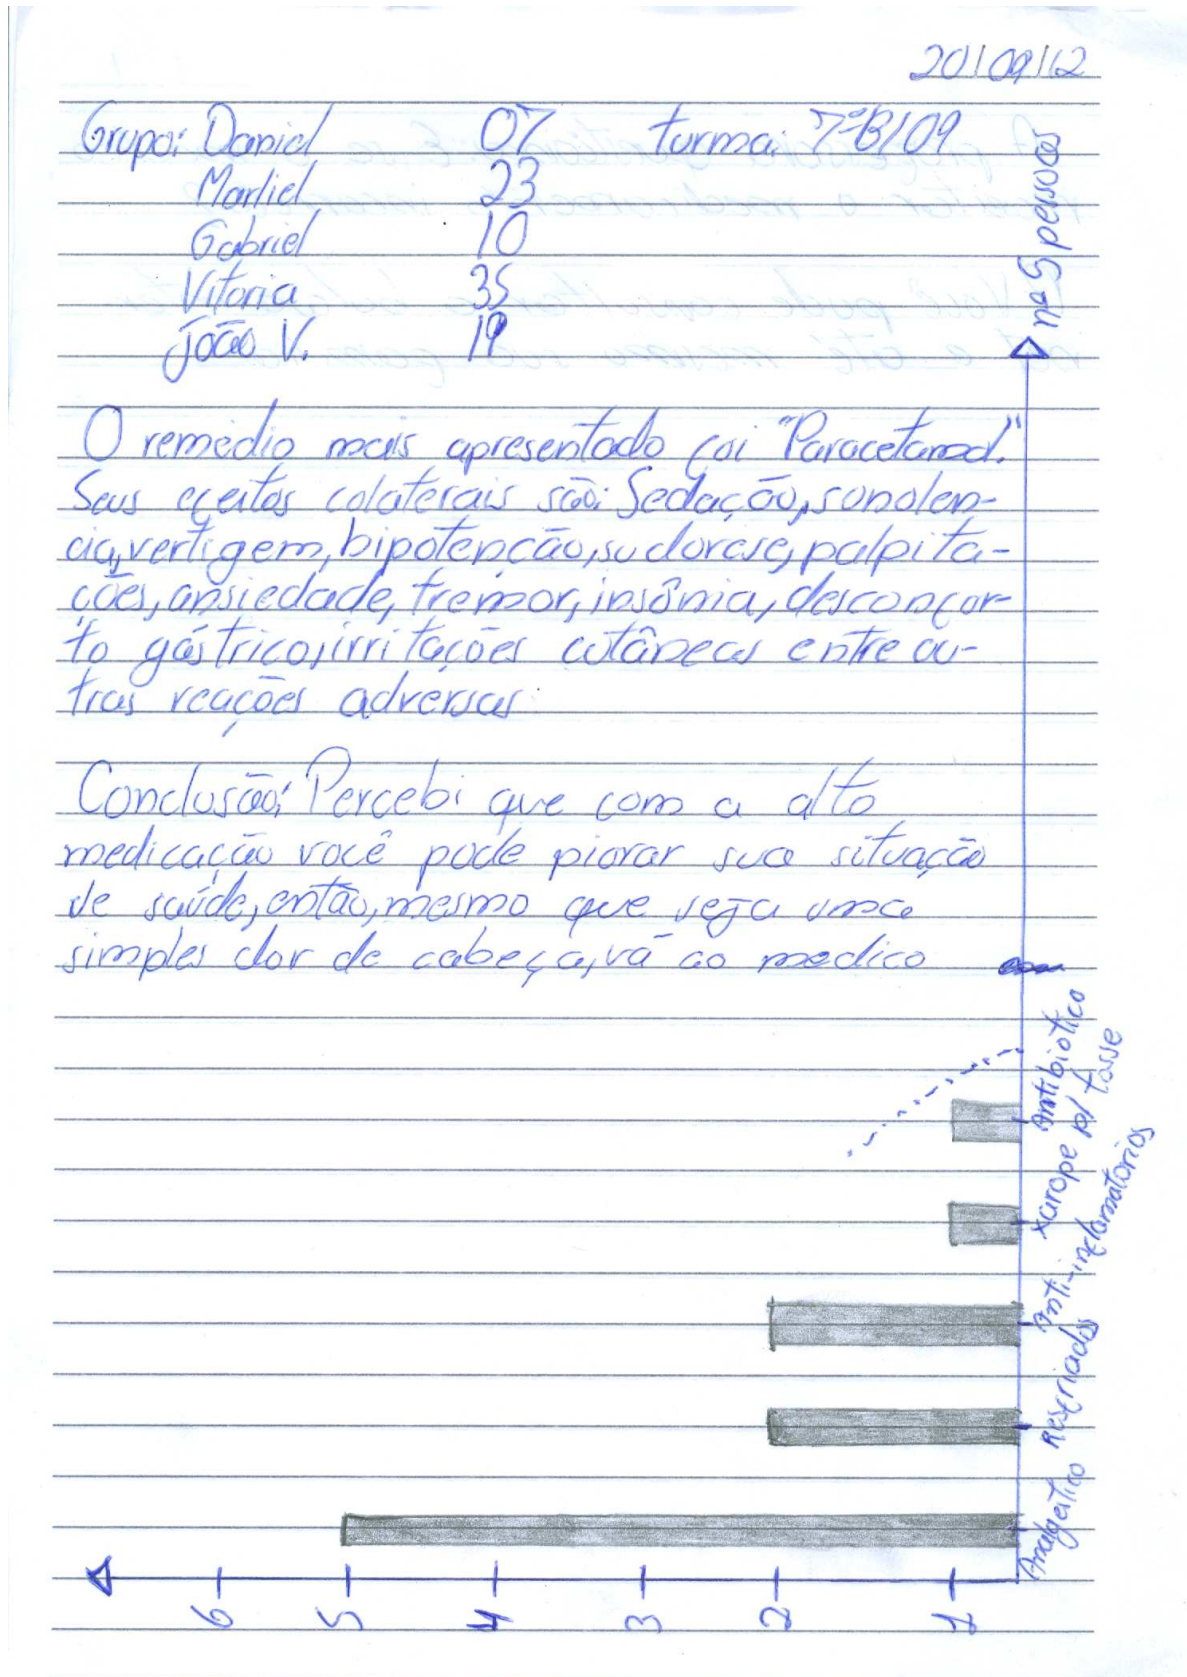 20/09/12
Grupo: Daniel 07 turma: 7ªB/09
Marliel 23
Gabriel 10
Vitoria 35
João V. 19
nº S pessoas
O remédio mais apresentado foi "Paracetamol."
Seus efeitos colaterais são: Sedação, sonolen-
cia, vertigem, hipotenção, sudorese, palpita-
ções, ansiedade, tremor, insônia, desconfor-
to gástrico, irritações cutâneas entre ou-
tras reações adversas
Conclusão: Percebi que com a alto
medicação você pode piorar sua situação
de saúde, então, mesmo que seja uma
simples dor de cabeça, vá ao medico
Antibiotico
Xarope p/ tosse
Anti-inflamatórios
Resfriados
Analgestico
6 5 4 3 2 1